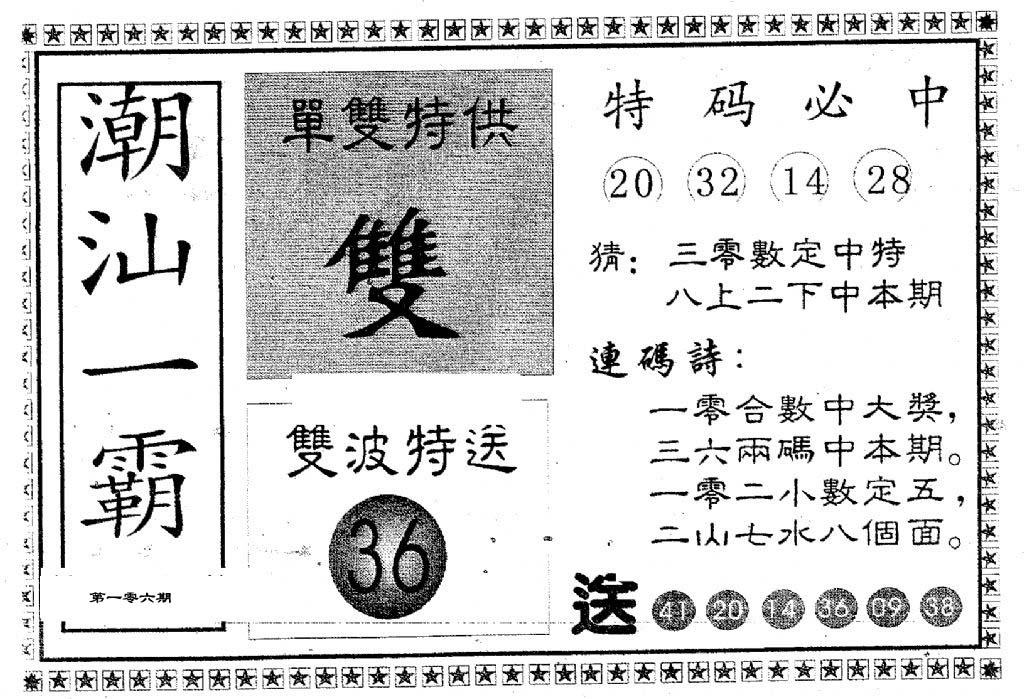 潮汕一霸
第一零六期
單雙特供
雙
雙波特送
36
特码必中
20 32 14 28
猜：三零數定中特
八上二下中本期
連碼詩：
一零合數中大獎，
三六兩碼中本期。
一零二小數定五，
二山七水八個面。
送 41 20 14 36 09 38